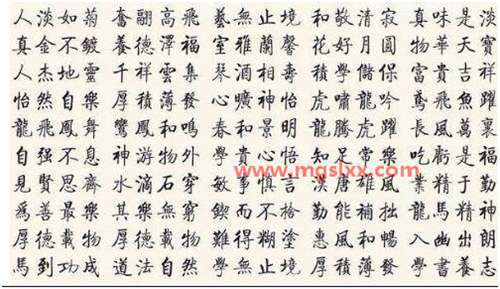 人淡如菊 奮翮高飛 藝無止境 和敬清寂 真味是淡
真金不鍍 養德澤福 室雅蘭馨 花好月圓 物華天寶
人杰地靈 千祥雲集 琴酒相壽 積學儲保 富貴吉祥
怡然自樂 厚積薄發 心曠神怡 虎嘯龍吟 鳶飛魚躍
龍飛鳳舞 鸞鳳和鳴 春和景明 龍騰虎躍 長風萬裏
自强不息 神游物外 學貴心悟 知足常樂 吃虧是福
www.mgslxx.com
見賢思齊 水滴石穿 敏事慎言 漢唐雄風 業精于勤
爲善最樂 其樂無窮 鍥而不捨 勤能補拙 龍馬精神
厚德載物 厚德載物 難得糊塗 惠風和暢 入幽出朗
馬到功成 道法自然 學無止境 厚積薄發 學書養